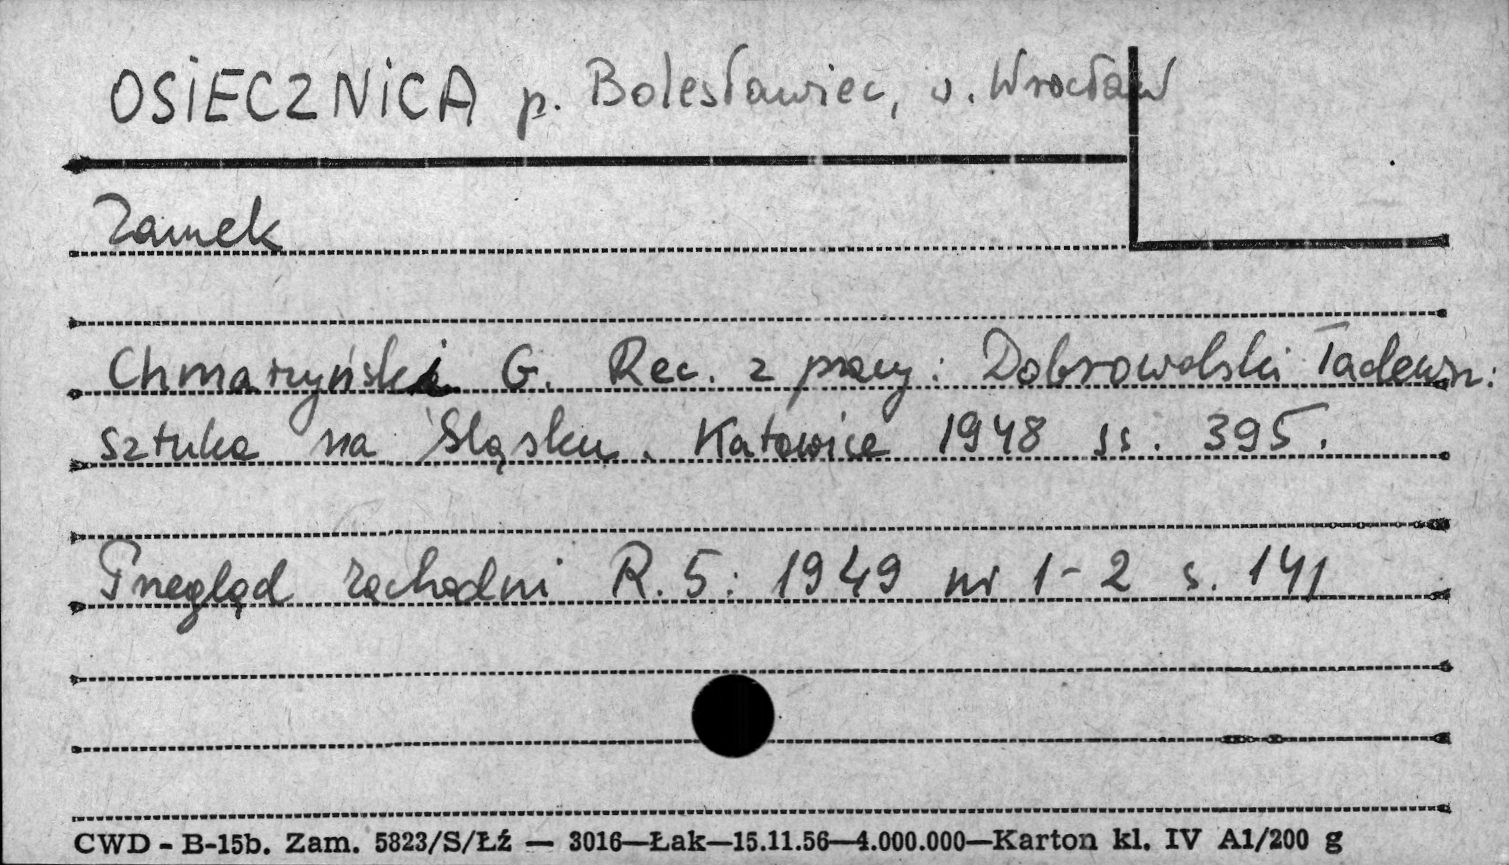 OSIECZNICA p. Bolesławiec, w. Wrocław
Zamek
Chmarzyński G. Rec. z pracy: Dobrowolski Tadeusz:
Sztuka na Śląsku. Katowice 1948 ss. 395.
Przegląd Zachodni R. 5: 1949 nr 1-2 s. 141
CWD - B-15b. Zam. 5823/S/Łź — 3016—Łak—15.11.56—4.000.000—Karton kl. IV A1/200 g